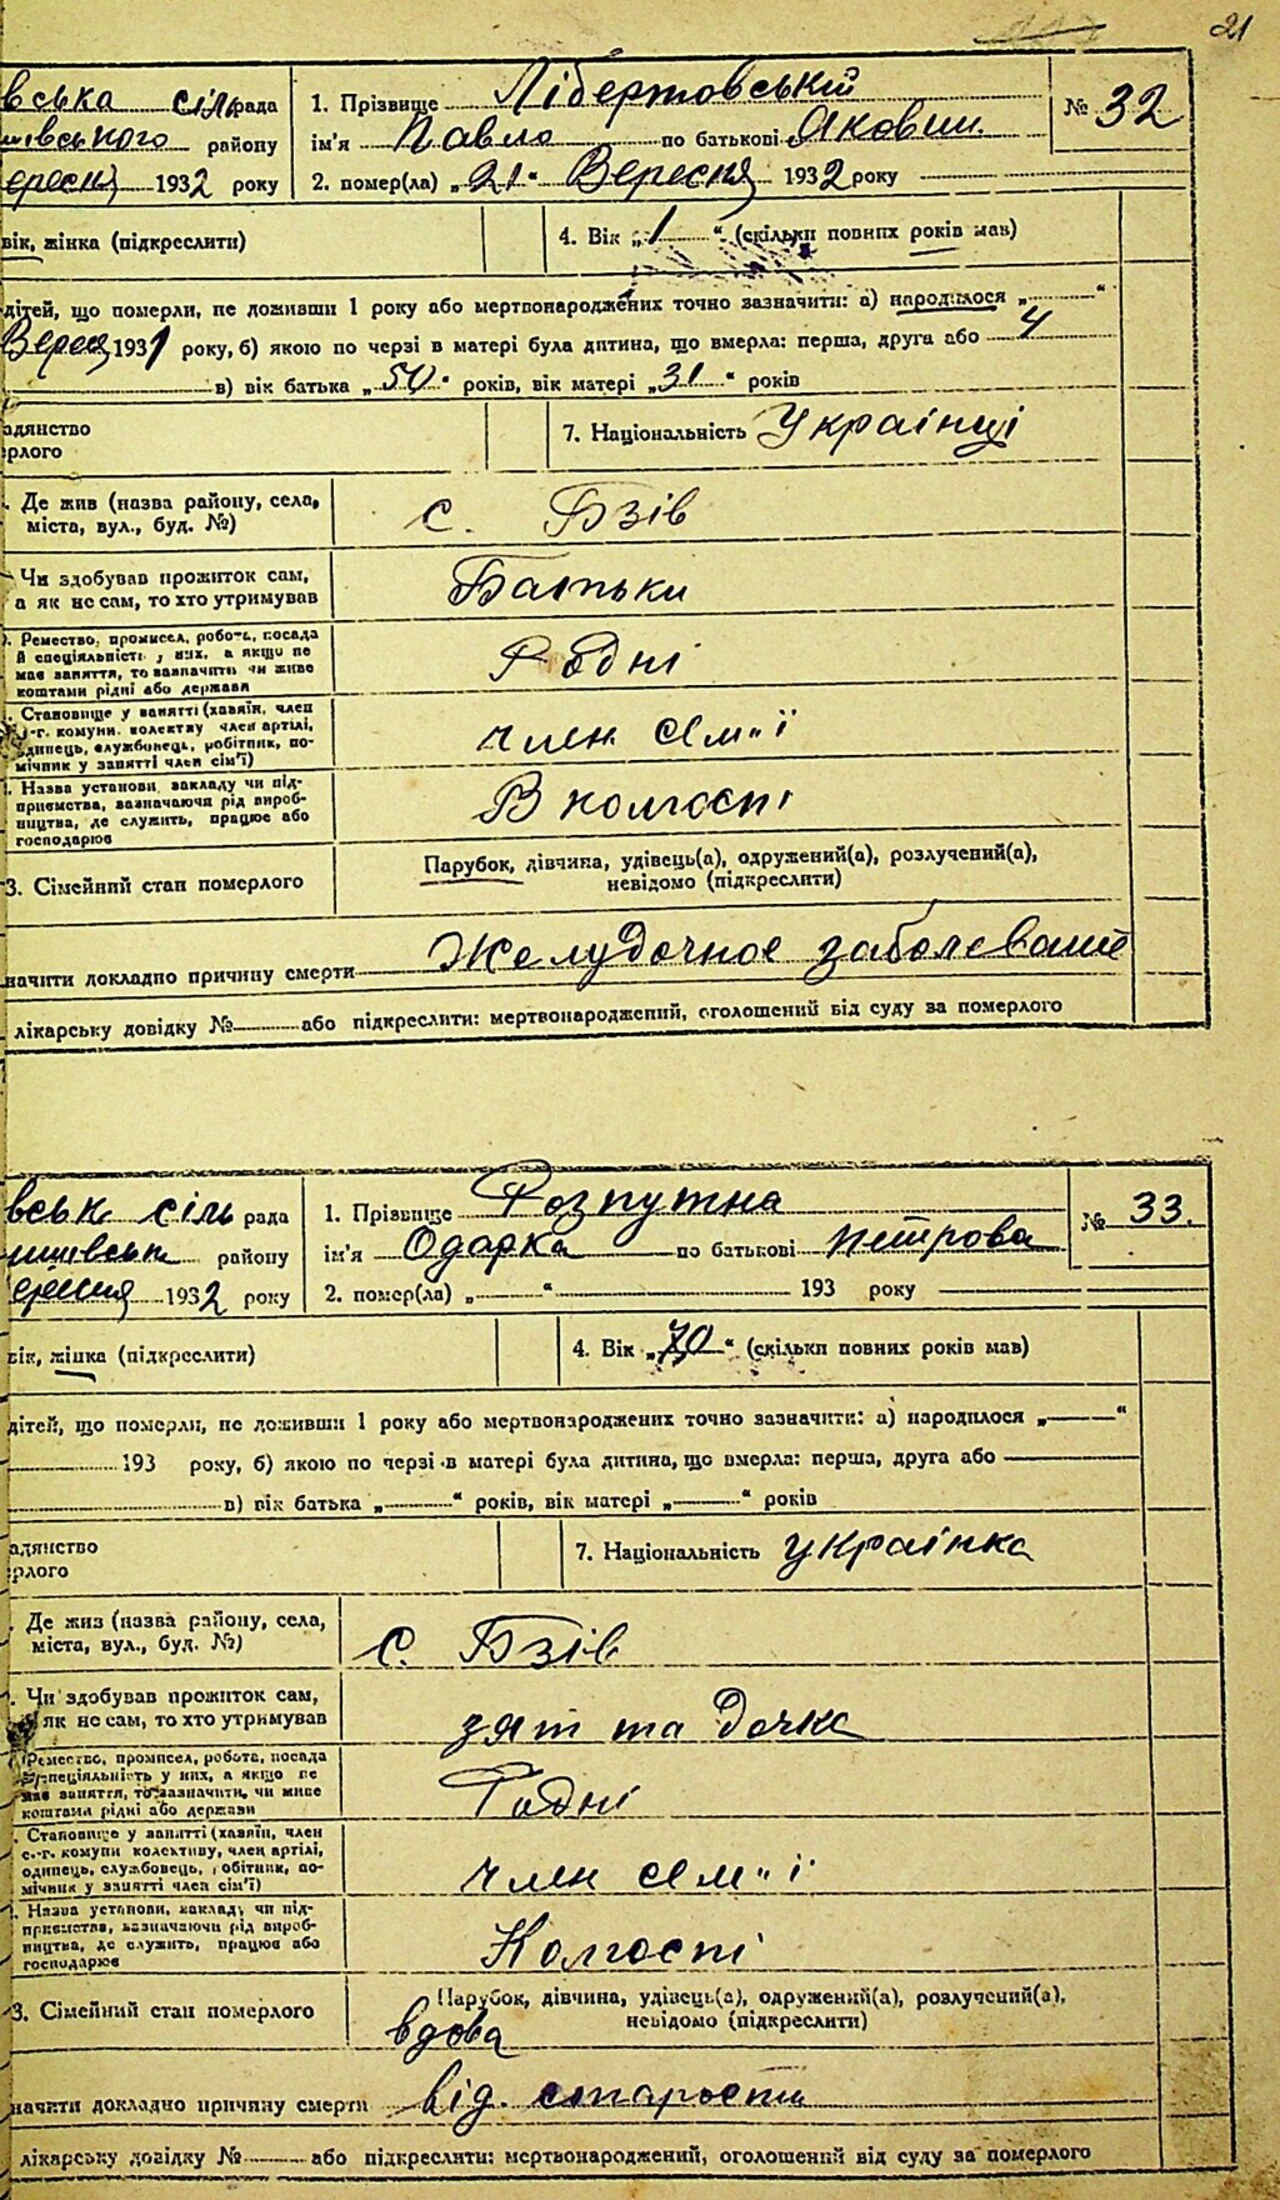 21
вська сільрада 1. Прізвище Лібертовський № 32
району ім'я Павло по батькові Якович
ересня 1932 року 2. помер(ла) „21“ Вересня 1932 року
вік, жінка (підкреслити) 4. Вік „1“ (скільки повних років мав)
дітей, що померли, не доживши 1 року або мертвонароджених точно зазначити: а) народилося „ “
Верес 1931 року, б) якою по черзі в матері була дитина, що вмерла: перша, друга або 4
в) вік батька „50“ років, вік матері „31“ років
адянство 7. Національність Українці
рлого
Де жив (назва району, села, с. Бзів
міста, вул., буд. №)
Чи здобував прожиток сам, Батьки
а як не сам, то хто утримував
Ремество, промисел, робота, посада Родні
й спеціяльність у них, а якщо не
має заняття, то зазначити чи живе
коштами рідні або держави
Становище у занятті (хазяїн, член член сем"ї
с.-г. комуни, колективу член артілі,
одинець, службовець, робітник, по-
мічник у занятті член сім'ї)
Назва установи, закладу чи під- В колгоспі
приємства, зазначаючи рід вироб-
ництва, де служить, працює або
господарює
3. Сімейний стан померлого Парубок, дівчина, удівець(а), одружений(а), розлучений(а),
невідомо (підкреслити)
начити докладно причину смерти Желудочное заболевание
лікарську довідку № або підкреслити: мертвонароджений, оголошений від суду за померлого
вськ сіль рада 1. Прізвище Розпутна № 33.
району ім'я Одарка по батькові Петрова
ересня 1932 року 2. помер(ла) „ “ 193 року
вік, жінка (підкреслити) 4. Вік „70“ (скільки повних років мав)
дітей, що померли, не доживши 1 року або мертвонароджених точно зазначити: а) народилося „ “
193 року, б) якою по черзі в матері була дитина, що вмерла: перша, друга або
в) вік батька „ “ років, вік матері „ “ років
адянство 7. Національність українка
рлого
Де жив (назва району, села, с. Бзів
міста, вул., буд. №)
Чи здобував прожиток сам, зят та дочка
як не сам, то хто утримував
Ремество, промисел, робота, посада Родні
й спеціяльність у них, а якщо не
має заняття, то зазначити, чи живе
коштами рідні або держави
Становище у занятті (хазяїн, член член сем"ї
с.-г. комуни колективу, член артілі,
одинець, службовець, робітник, по-
мічник у занятті член сім'ї)
Назва установи, закладу чи під- Колгоспі
приємства, зазначаючи рід вироб-
ництва, де служить, працює або
господарює
3. Сімейний стан померлого Парубок, дівчина, удівець(а), одружений(а), розлучений(а),
невідомо (підкреслити)
вдова
начити докладно причину смерти від. старости
лікарську довідку № або підкреслити: мертвонароджений, оголошений від суду за померлого